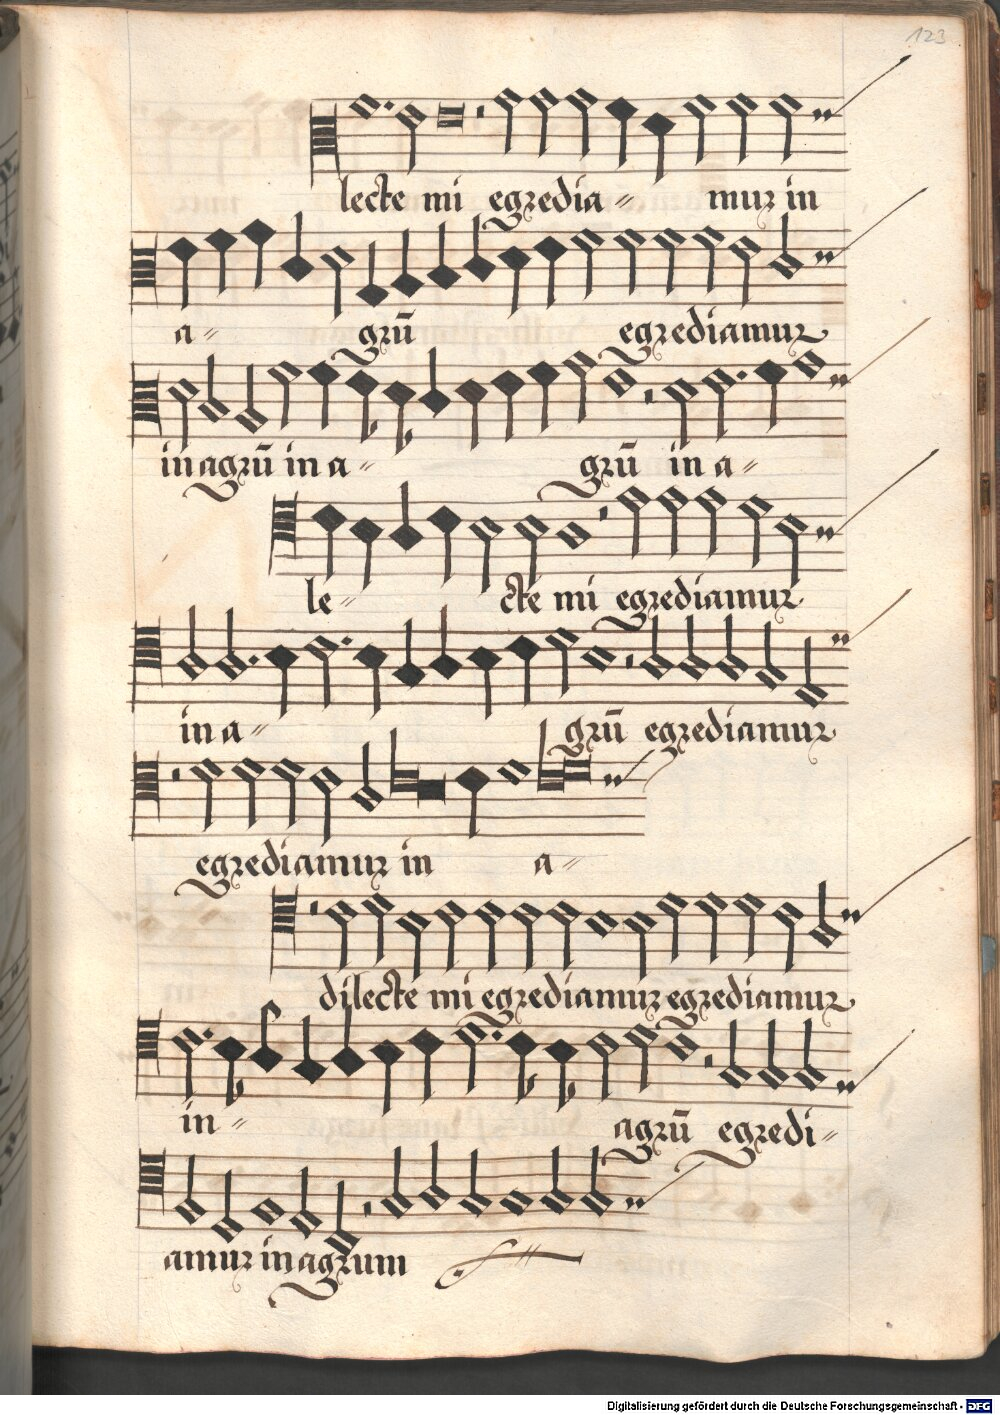 123
lecte mi egredia= mur in
a= grū egrediamur
in agrū in a= grū in a=
le= cte mi egrediamur
in a= grū egrediamur
egrediamur in a=
dilecte mi egrediamur egrediamur
in= agrū egredi=
amur in agrum
Digitalisierung gefördert durch die Deutsche Forschungsgemeinschaft - DFG